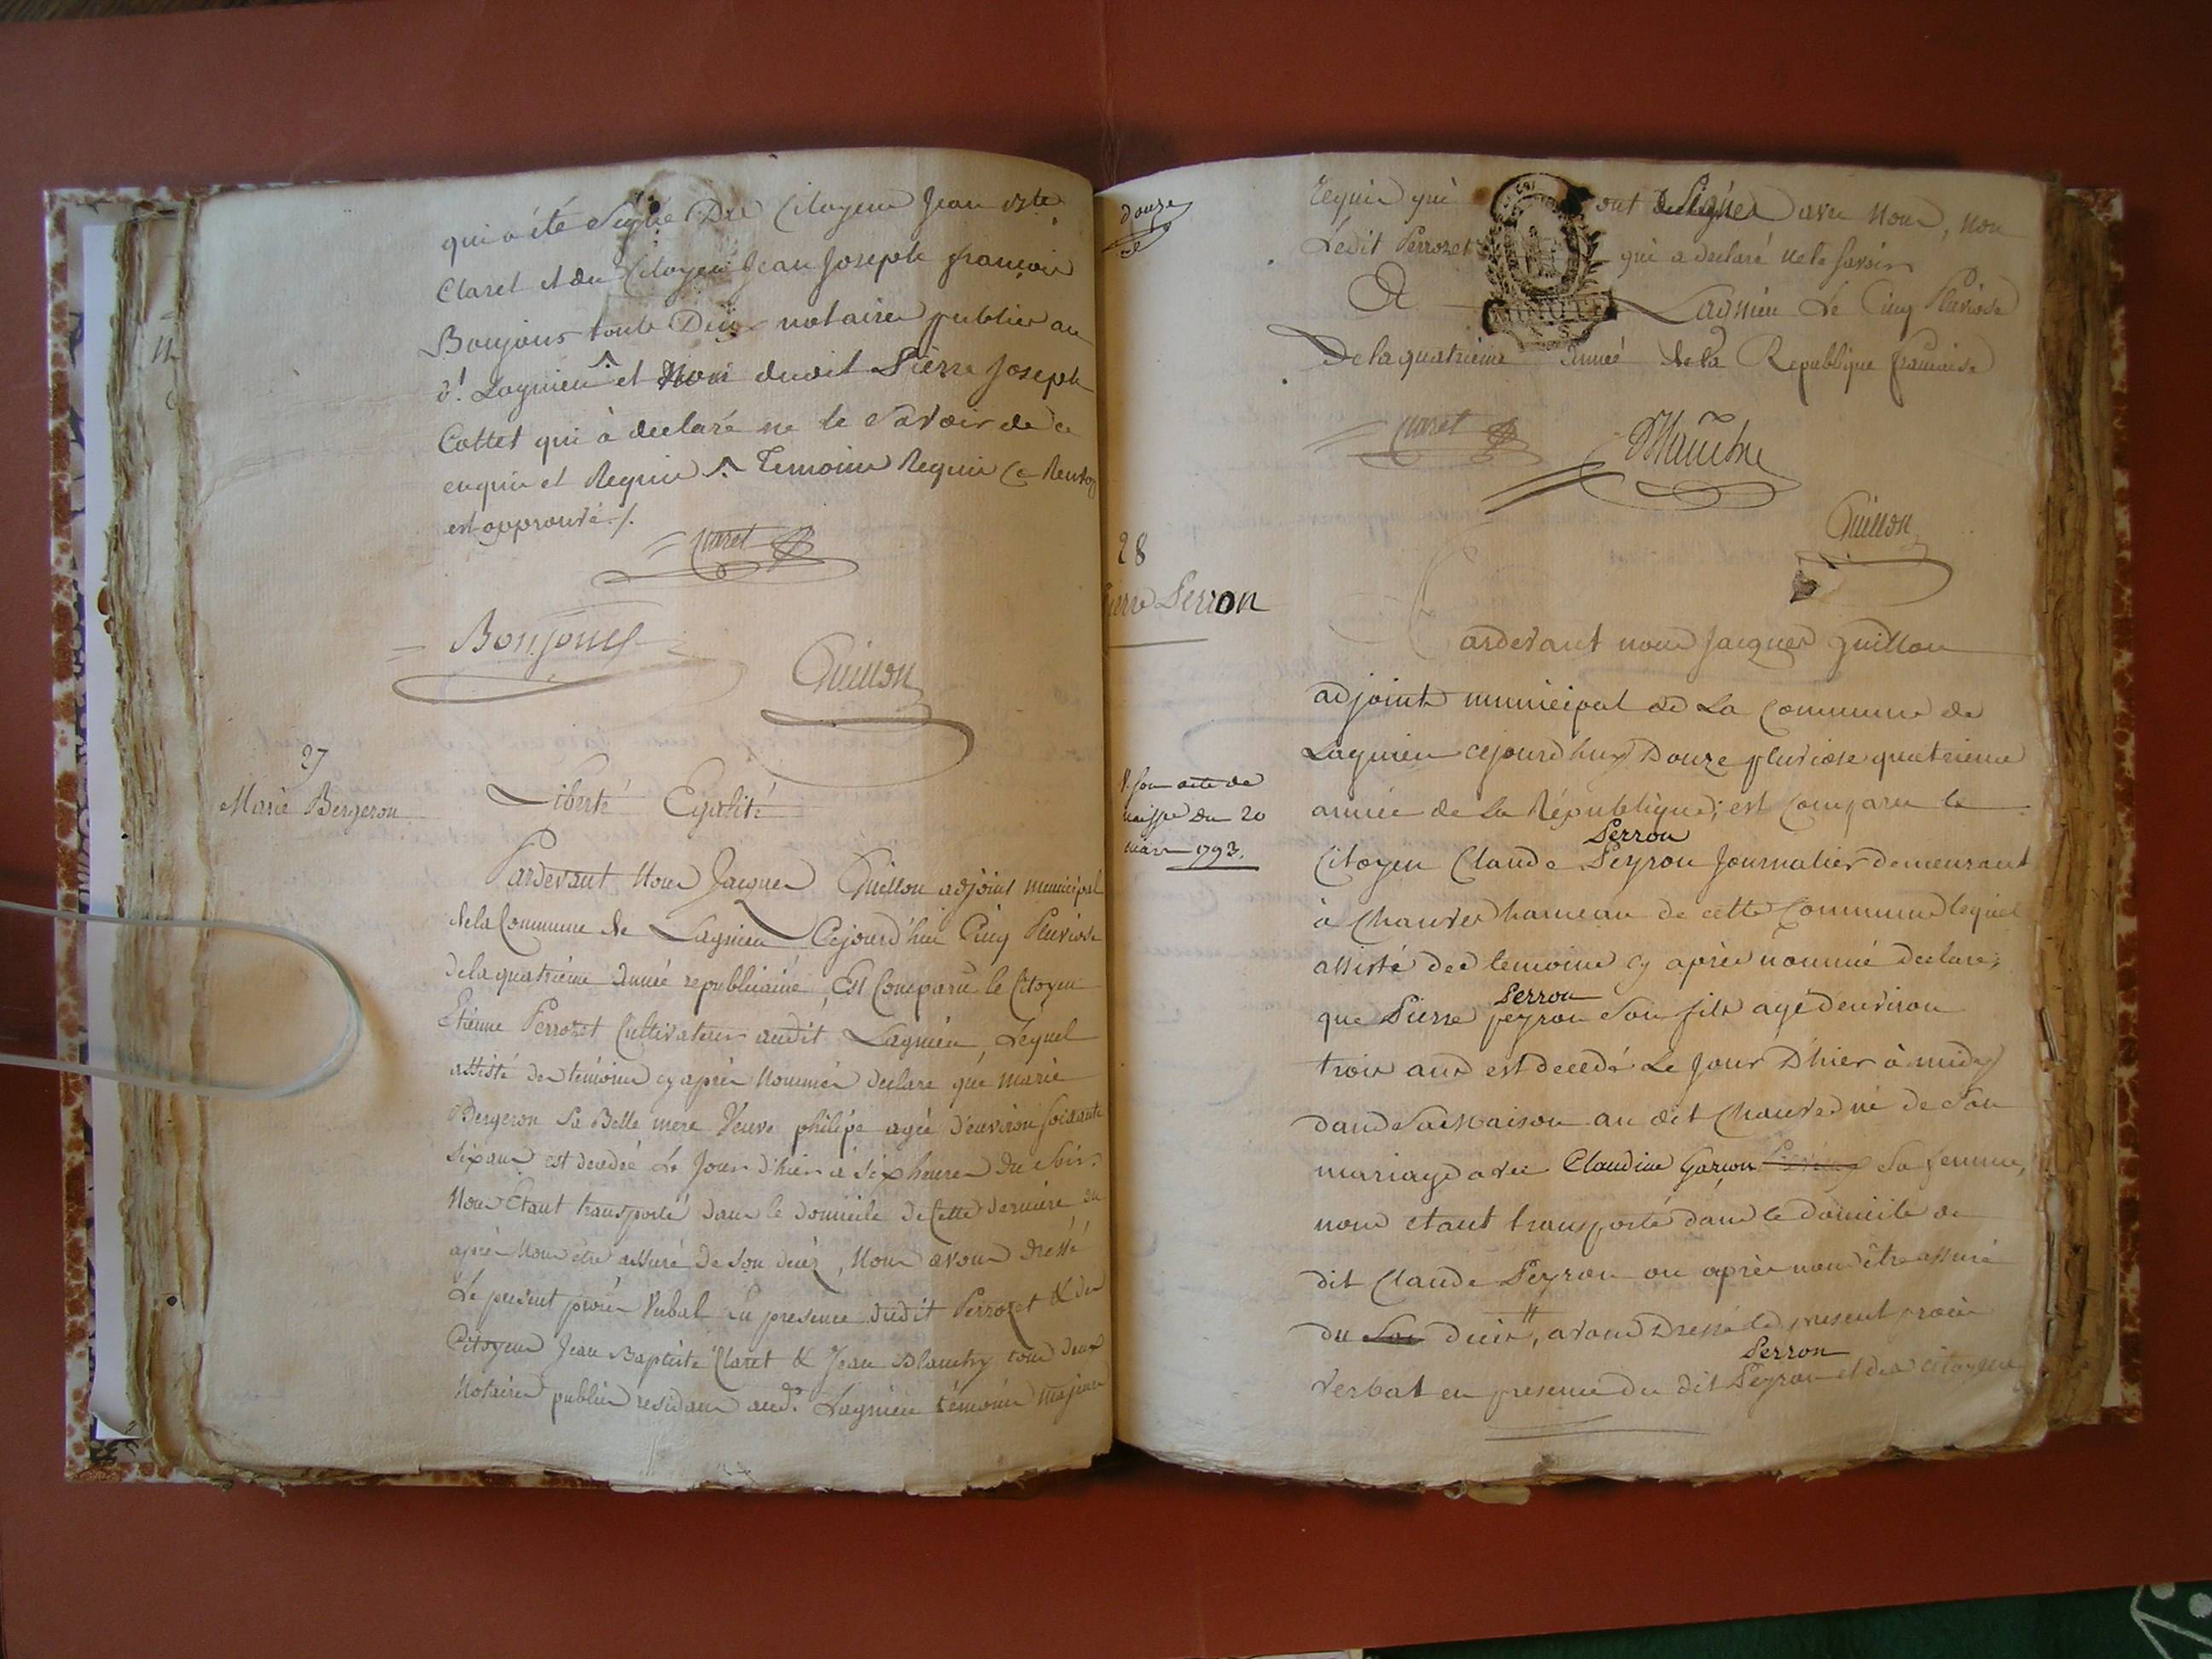 qui a été Signé Du Citoyen Jean Bte
Claret et du Citoyen Jean Joseph françois
Bonjour touts Deux notaires publics au
dt. Lagnieu ^ et Non dudit Pierre Joseph
Cottet qui à declaré ne le Savoir de ce
enquis et Requis ^ Temoins Requis Ce Renvoy
est approuvé ./.
Claret
Bonjour
Guillon
27
Marie Bergeron
Liberté Egalité
Pardevant Nous Jacques Guillon adjoint municipal
de la Commune de Lagnieu Cejourd'hui Cinq Pluviose
de la quatrième Année republicaine, Est Comparu le Citoyen
Etienne Perrozet Cultivateur audit Lagnieu, Lequel
assisté des témoins cy après Nommés declare que marie
Bergeron Sa Belle mere Veuve philipe agée d'environ soixante
Six ans est decedée Le Jour d'hier à Six heures Du Soir.
Nous Etant transporté dans le domicile de Cette dernière ou
après Nous être assuré De Son decés, Nous avons Dressé
Le present procès Verbal En presence Dudit Perrozet & des
Citoyens Jean Baptiste Claret & Jean Blanchy tous deux
Notaires publics residans aud. Lagnieu témoins majeurs
douze
Requis qui ont Signés avec Nous, Non
Ledit Perrozet qui a declaré ne le Savoir
A Lagnieu Le Cinq Pluviose
De la quatrieme Année de la Republique francaise
Claret
Guillon
28
Pierre Perron
Pardevant nous Jacques Guillon
adjoint municipal de La Commune de
Lagnieu cejourdhuy Douze pluviose quatrieme
année de La République; est Comparu le
Perron
Citoyen Claude Peyron Journalier demeurant
V. son acte de
naissce du 20
mars 1793.
à Chauves hameau de cette Commune lequel
assisté des temoins cy après nommé declare;
Perron
que Pierre peyron Son fils agé d'environ
trois ans est decedé Le Jour D'hier à midy
dans Sa Maison au dit Chauves né de Son
mariage avec Claudine Garion Sa femme,
nous etant transporté dans le domicile du
dit Claude Peyron ou après nous être assuré
du Son decés, avons Dressé le present procès
Perron
verbal en presence du dit Peyron et des citoyens